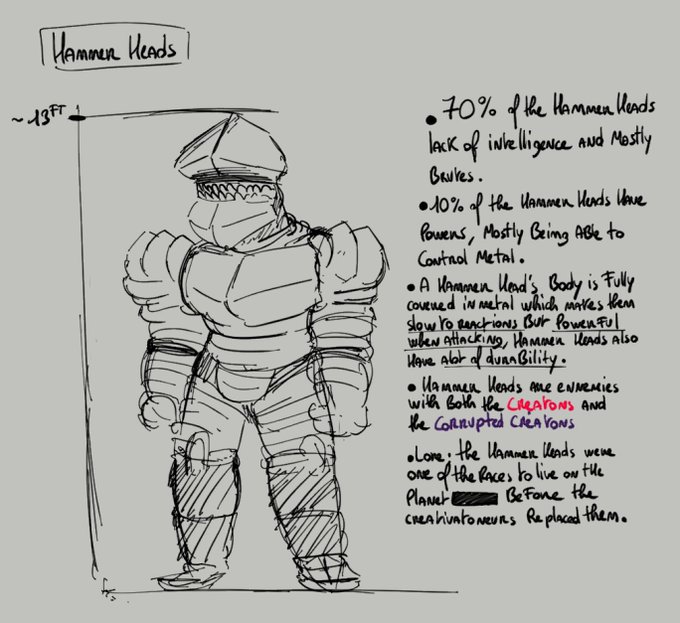 Hammer Heads
~13FT
• 70% of the Hammer Heads
lack of intelligence and Mostly
Brutes.
• 10% of the Hammer Heads Have
Powers, Mostly Being Able to
Control Metal.
• A Hammer Head's Body is Fully
covered in metal which makes them
slow to reactions But Powerful
when Attacking, Hammer Heads also
Have alot of duraBility.
• Hammer Heads are ennemies
with Both the Creatons and
the Corrupted Creatons
• Lore: the Hammer Heads were
one of the Races to live on the
Planet BeFore the
creativatoneurs Replaced them.